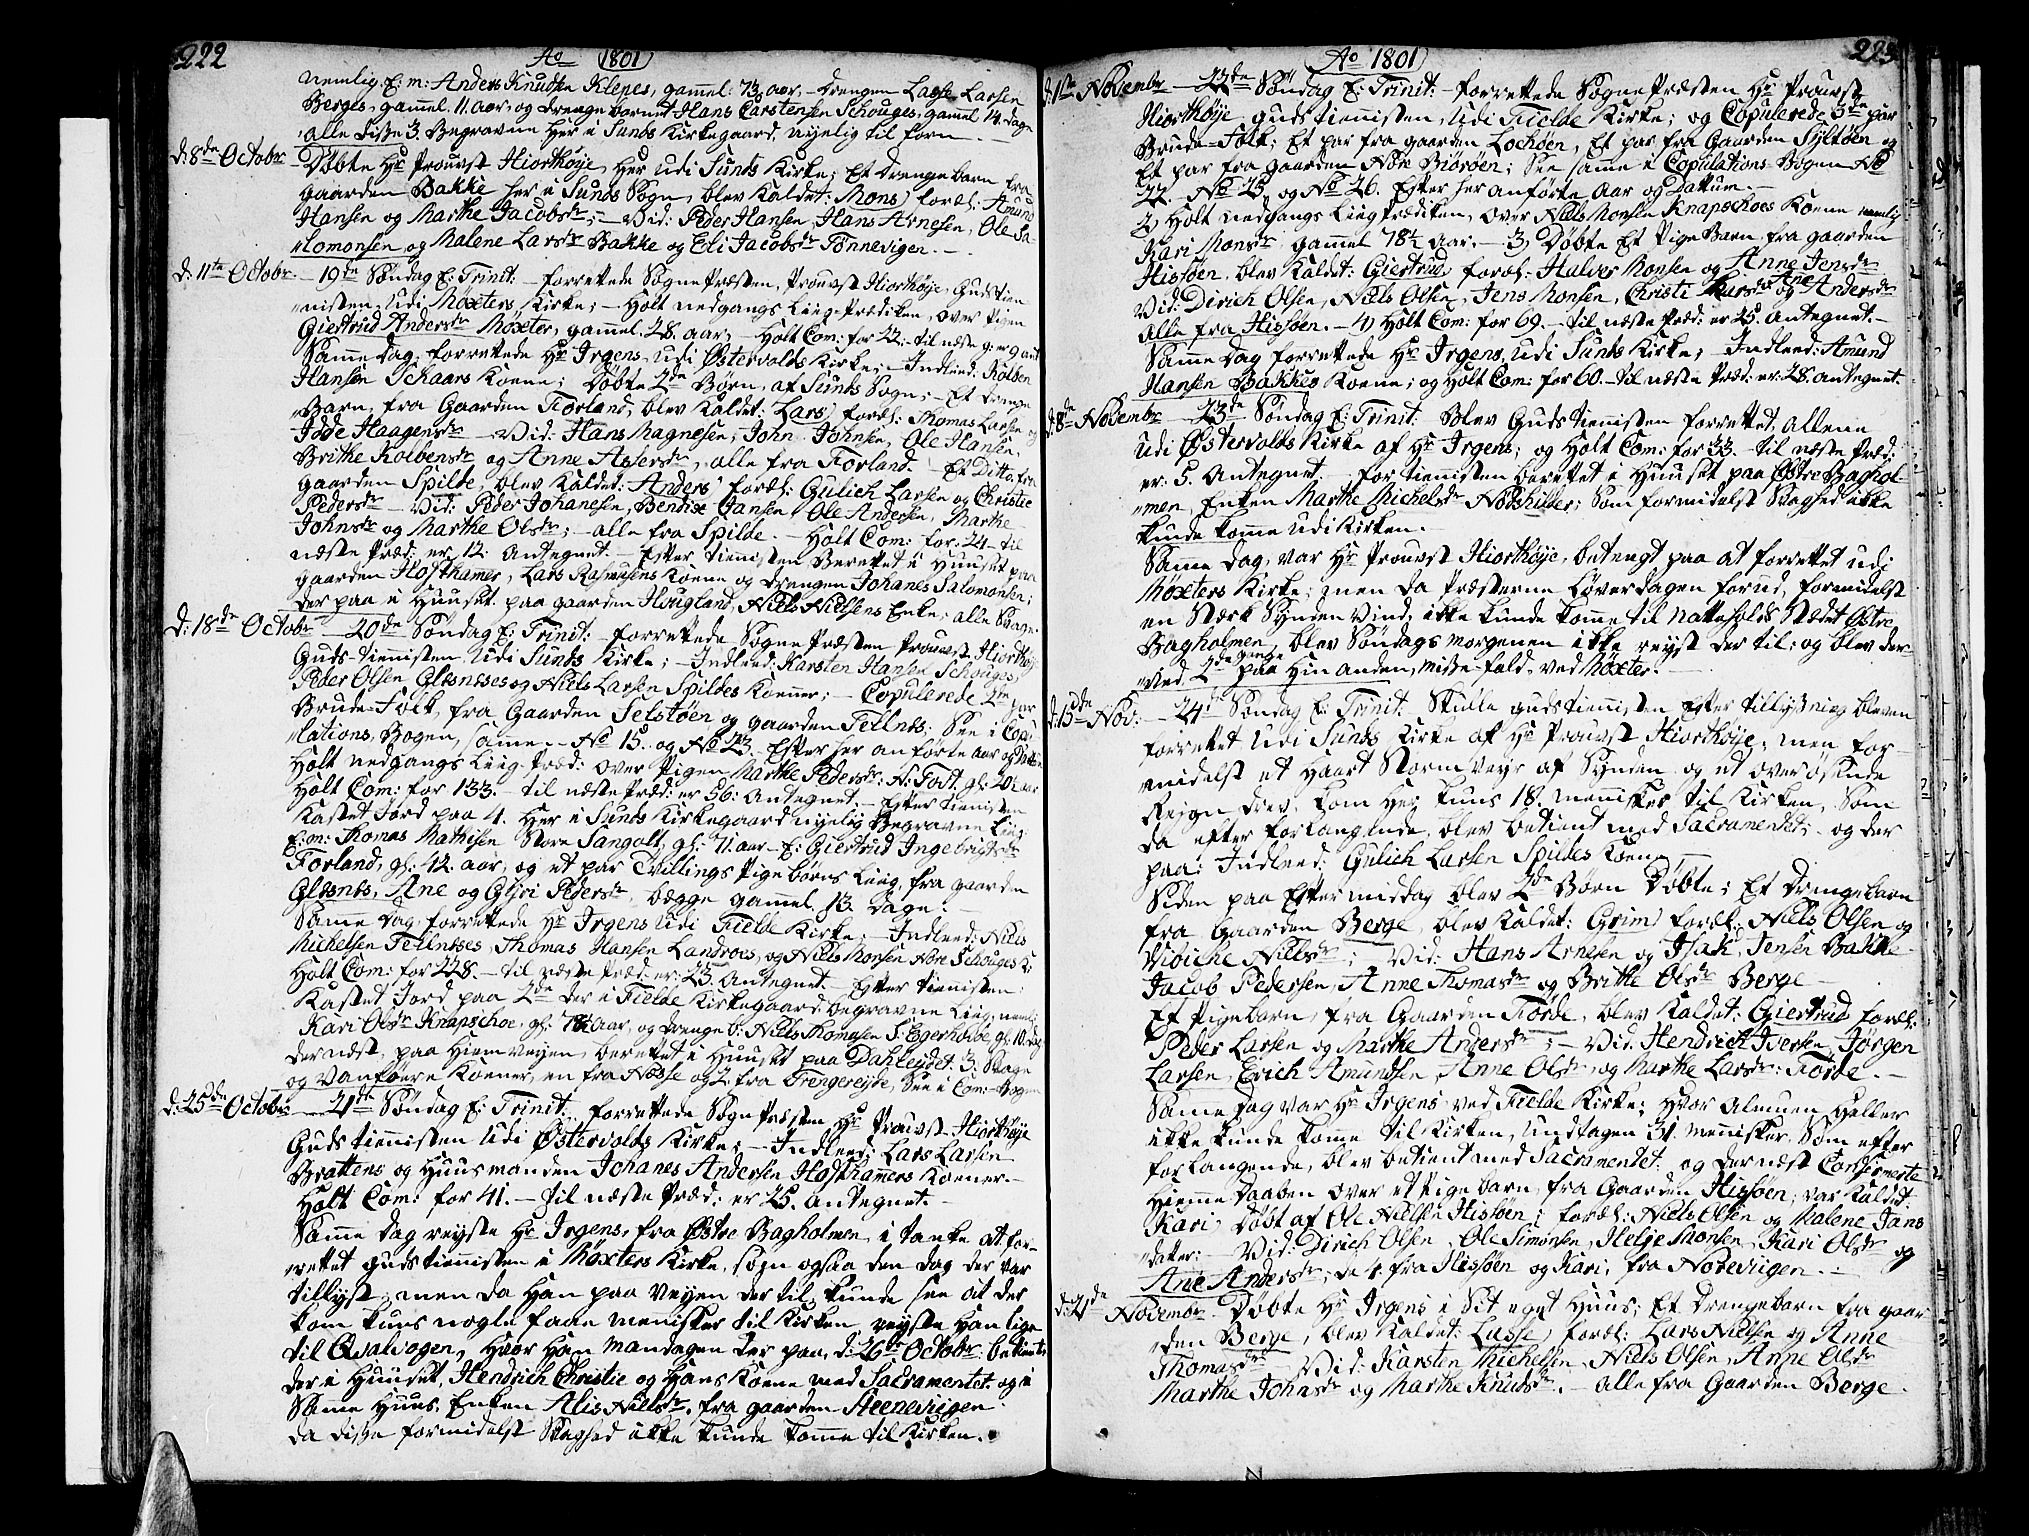 222
Ao 1801
nemlig E: M: Anders Knudsen Klepes, gammel: 73 aar, - Drengen Lasse Larsen
Berges, gammel 11. aar, og Drengebarnet Hans Carstensen Schouges, gamel 14. dage
alle disse 3. Begravne her i Sunds Kirkegaard, nyelig til forn -
d: 8de Octobr - Døbte Hr Provst Hiorthøye, her udi Sunds Kirke; Et Drengebarn fra
gaarden Bakke her i Sunds Sogn, blev kaldet: Mons) foræl: Amund
Hansen og Marthe Jacobsdr; - Vid: Peder Hansen, Hans Arnesen, Ole Sa-
lomonsen og Malene Larsdr Bakke og Eli Jacobsdr Tønnevigen. -
d: 11te Octobr. - 19de Søndag E: Trinit: - forrettede SognePræsten, Prouvst Hiorthøye, Gudstien
nisten, udi Møxters Kirke; - Holt nedgangs Liig-Prædiken, over Pigen
Giertrud Andersdr Møxter, gamel. 28. aar; - Holt Com: for 22; - til næste g: er 9 ant
Samme Dag, forrettede Hr Irgens, udi Østervolds Kirke; - Indleed: Kolben
Hansen Schaars Koene; Døbte 2de Børn, af Sunds Sogn; - Et Drenge
Barn, fra Gaarden Forland, blev kaldet: Lars) foræl: Thomas Larsen og
Idde Haagensdr - Vid: Hans Magnesen, John Johnsen, Ole Hansen,
Brithe Kolbensdr og Anne Assersdr, alle fra Forland. - Et Ditto, fra
gaarden Spilde, blev kaldet: Anders) foræl: Gulich Larsen og Christie
Pedersdr - Vid: Peder Johanesen, Bendix Jansen, Ole Andersen, Marthe
Johnsdr og Marthe Olsdr; - alle fra Spilde. - Holt Com: for: 24 - til
næste Præd: er 12. Antegnet. - Efter tienisten Berettet i Huuset paa
gaarden Hofthamer, Lars Rasmusens Koene og Drengen Johanes Salomonsen;
Der paa i Huuset paa gaarden Hougland, Niels Nielsens Enke; alle Svage.
d: 18de Octobr - 20de Søndag E: Trinit: - forrettede SognePræsten Prouvst Hiorthøye
Guds-tienisten udi Sunds Kirke; - Indleed: Karsten Hansen Schouges,
Peder Olsen Glesnæses og Niels Larsen Spildes Koener; - Copulerede 2de par
Brude-Folk, fra Gaarden Selstøen og gaarden Tellnes; See i Copu
lations Bogen, samme - No 15. og No 23. Efter her anførte aar og Datum
Holt nedgangs Liig-Præd: over Pigen Marthe Pedersdr: N: Toft. gl: 20½ aar
Holt Com: for 133. - til næste Præd: er 56: Antegnet. - Efter tienisten
Kastet Jord paa 4. her i Sunds Kirkegaard nyelig Begravne Liig:
E: M: Thomas Mathisen Store Sangolt, gl: 71. aar - E: Giertrud Ingebrigtsdr
Forland, gl: 42. aar, og et par Tvillings Pigebørns Liig, fra gaarden
Glesnes, Ane og Gyri Pedersdr, bægge gammel. 13. Dage. -
Samme Dag, forrettede Hr Irgens udi Fielde Kirke; - Indleed: Niels
Michelsen Tellneses, Thomas Hansen Landroes, og Niels Monsen Nore Schouges K:
Holt Com: for 228. - til næste Præd: er: 23. Antegnet. - Efter tienisten:
Kastet Jord paa 2de der i Fielde Kirkegaard begravne Liig, neml:
Kari Olsdr Knapschoe, gl: 78½ Aar, og Drenge b: Niels Thomasen S: Egerhovde, gl: 10. dag
dernæst, paa Hiemveyen, berettet i Huuset paa Dahleydet 3. Svage
og Vanføere Koener, en fra Nesse og 2. fra Trengereyde, See i Com: Bogen
d: 25de Octobr. - 21de Søndag E: Trinit: - forrettede SognePræsten Hr Prouvst Hiorthøye
Guds tienisten udi Østervolds Kirke; - Indleed: Lars Larsen
Brattens og Huusmanden Johanes Andersen Hofthamers Koener. -
Holt Com: for 41. - til næste Præd: er 25. antegnet. -
Samme Dag reyste Hr Irgens, fra Østre Bagholmen, i tanke at for-
rettet gudstienisten i Møxters Kirke, som ogsaa den dag der var
tillyst; men da han paa veyen der til kunde see at der
kom kuns nogle faae mennisker til Kirken, reyste han lige
til Qvalvogen, hvor han mandagen der paa, d: 26de Octobr. betiente
der i Huuset, Hendrich Christie og Hans Koene med Sacramentet, og i
Samme Huus, Enken Alis Nielsdr. fra gaarden Steenevigen
da disse formidelst Svaghed ikke kunde komme til Kirken. -
223
Ao 1801
d: 1ste Novembr - 22de Søndag E: Trinit: - forrettede SognePræsten Hr Prouvst
Hiorthøye gudstienisten, udi Fielde Kirke; og Copulerede 3de par
Brude-Folk; Et par fra gaarden Lochøen, Et par fra Gaarden Syltøen og
Et par fra gaarden Nore Biorøen; See samme i Copulations-Bogen No
22. No 25, og No 26. Efter her anførte Aar og Datum. -
2) Holt nedgangs Liigprædiken, over Niels Monsen Knapschoes Koene nemlig
Kari Monsdr gammel 78½ Aar. - 3) Døbte Et Pige Barn, fra gaarden
Hissøen, blev kaldet: Giertrud, foræl: Halver Monsen og Anne Jensdr
Vid: Dirich Olsen, Niels Olsen, Jens Monsen, Christi Larsdr og Ane Andersdr
alle fra Hissøen. - 4) Holt Com: for 69. - til næste Præd: er 25. Antegnet. -
Samme Dag forrettede Hr Irgens, udi Sunds Kirke; - Indleed: Amund
Hansen Bakkes Koene; og Holt Com: for 60. - til næste Præd: er: 28. antegnet.
d: 8de Novembr - 23de Søndag E: Trinit: blev Gudstienisten forrettet, allene
udi Østervolds Kirke af Hr Irgens; og Holt Com: for 33. til næste Præd:
er: 5. Antegnet. - for tienisten berettet i Huuset paa Østre Baghol-
men, Enken Marthe Michelsdr Nordskilder; Som formidelst Svaghed ikke
kunde komme udi Kirken. -
Samme Dag, var Hr Prouvst Hiorthøye, betengt paa at forrettet udi
Møxters Kirke; men da Præsterne Løverdagen forud, formidelst
en stærk Synden Vind, ikke kunde komme til natteholds Stædet Østre
Bagholmen, blev Søndags morgenen ikke reyst der til; og blev der-
ved 2de gange paa Hin anden, misse-fald, ved Møxter. -
d: 15de Nov: - 24de Søndag E: Trinit: Skulle gudstienisten efter tillysning bleven
forrettet udi Sunds Kirke af Hr Prouvst Hiorthøye; men for-
midelst et Haart Stormveyr af Synden og et overøsende
Reign drev, kom her kuns 18. mennisker til Kirken, Som
da efter forlangende, blev betient med Sacramentet; og der
paa: Indleed: Gulich Larsen Spildes Koene. -
Siden paa Eftermiddag blev 2de Børn Døbte; Et Drengebarn
fra Gaarden Berge, blev kaldet: Grim) foræl: Niels Olsen og
Vibiche Nielsdr; - Vid: Hans Arnesen og Isak Jensen Bakke
Jacob Pedersen, Anne Thomasdr og Brithe Olsdr Berge -
Et Pigebarn, fra GaardenFørde, blev kaldet: Giertrud foræl:
Peder Larsen og Marthe Andersdr; - Vid: Hendrich Iversen, Jørgen
Larsen, Erich Amundsen, Anne Olsdr, og Marthe Larsdr: Førde. -
Samme Dag var Hr Irgens ved Fielde Kirke; hvor Almuen heller
ikke kunde komme til Kirken, undtagen 31. mennisker Som efter
forlangende, blev betient med Sacramentet, og dernæst Confirmerte
Hiemme daaben over et Pigebarn, fra Gaarden Hissøen, var kaldet:
Kari) døbt af Ole Nielsen Hissøen; foræl: Niels Olsen og Malene Jans
datter: - Vid: Dirich Olsen, Ole Simonsen, Helje Monsen, Kari Olsdr og
Ane Andersdr, de 4. fra Hissøen og Kari, fra Nordevigen. -
d: 21de Novembr. Døbte Hr Irgens i Sit eget Huus; Et Drengebarn fra gaar
den Berge, blev kaldet: Lasse) foræl: Lars Nielsen og Anne
Thomasdr - Vid: Karsten Michelsen, Niels Olsen, Anne Olsdr
Marthe Johnsdr og Marthe Knudsdr. - alle fra Gaarden Berge.